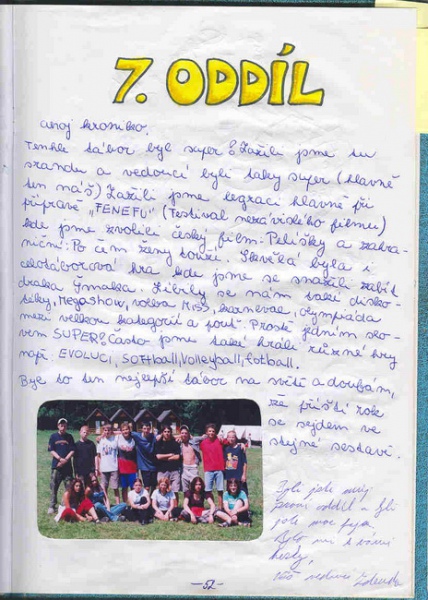 7. ODDÍL
ahoj kroniko,
Tenhle tábor byl super! Zažili jsme tu
srandu a vedoucí byli taky super (hlavně
ten náš) Zažili jsme legraci hlavně při
přípravě "FENEFU" (Festival nezávislého filmu)
kde jsme zvolili český film: Pelíšky a zahra-
niční: Po čem ženy touží. Skvělá byla i
celotáborová hra kde jsme se snažili zabít
draka Šmaka. Líbily se nám také disko-
téky, Megashow, volba Miss, karneval, olympiáda
mezi velkou kategorií a pouť. Prostě jedním slo-
vem SUPER! Často jsme také hráli různé hry
např: EVOLUCI, SOFTball, Volleyball, fotball.
Byl to ten nejlepší tábor na světě a doufám,
že příští rok
se sejdem ve
stejné sestavě.
Byli jste můj
první oddíl a byli
jste moc fajn
Bylo mi s vámi
hezky,
Váš vedoucí Zdenda
-52-